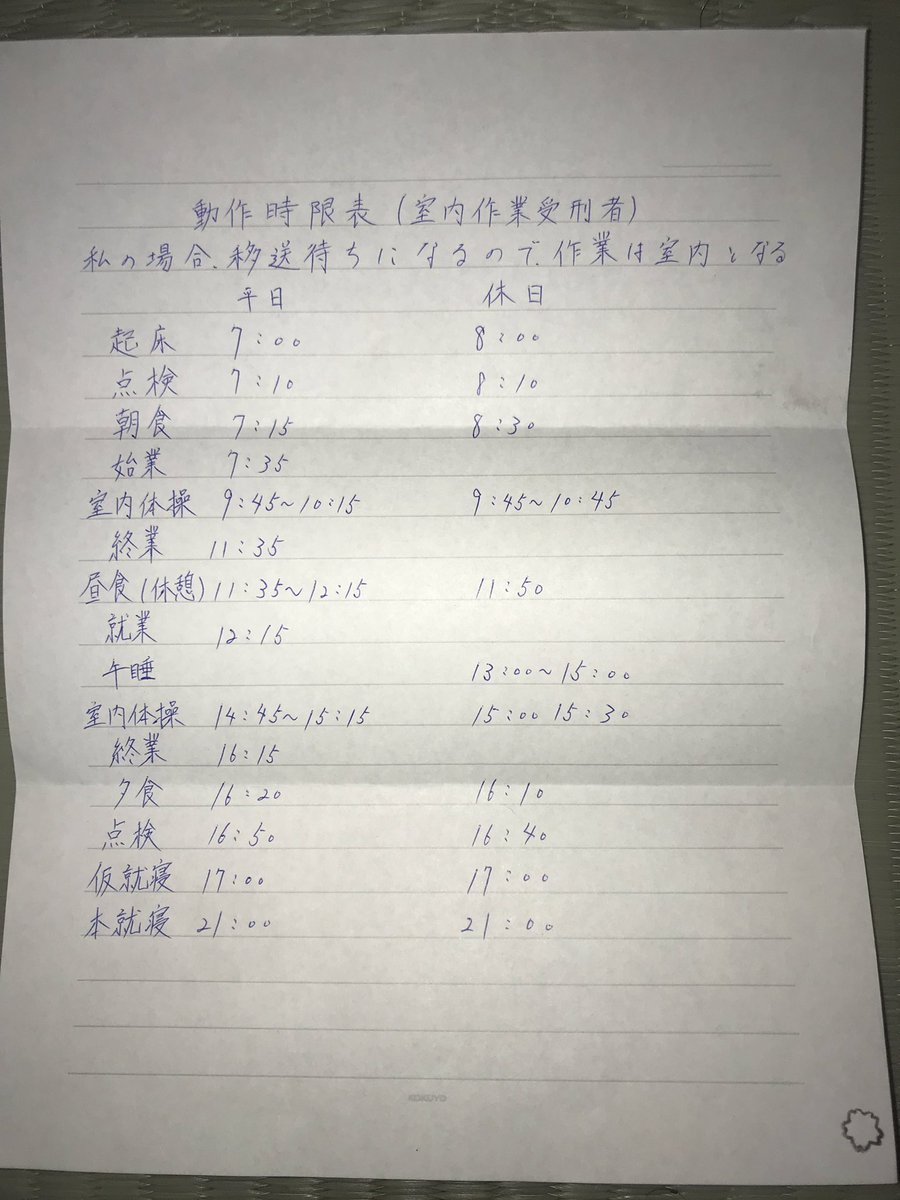 動作時限表(室内作業受刑者)
私の場合、移送待ちになるので、作業は室内となる
平日 休日
起床 7:00 8:00
点検 7:10 8:10
朝食 7:15 8:30
始業 7:35
室内体操 9:45~10:15 9:45~10:45
終業 11:35
昼食(休憩) 11:35~12:15 11:50
就業 12:15
午睡 13:00~15:00
室内体操 14:45~15:15 15:00 15:30
終業 16:15
夕食 16:20 16:10
点検 16:50 16:40
仮就寝 17:00 17:00
本就寝 21:00 21:00
KOKUYO